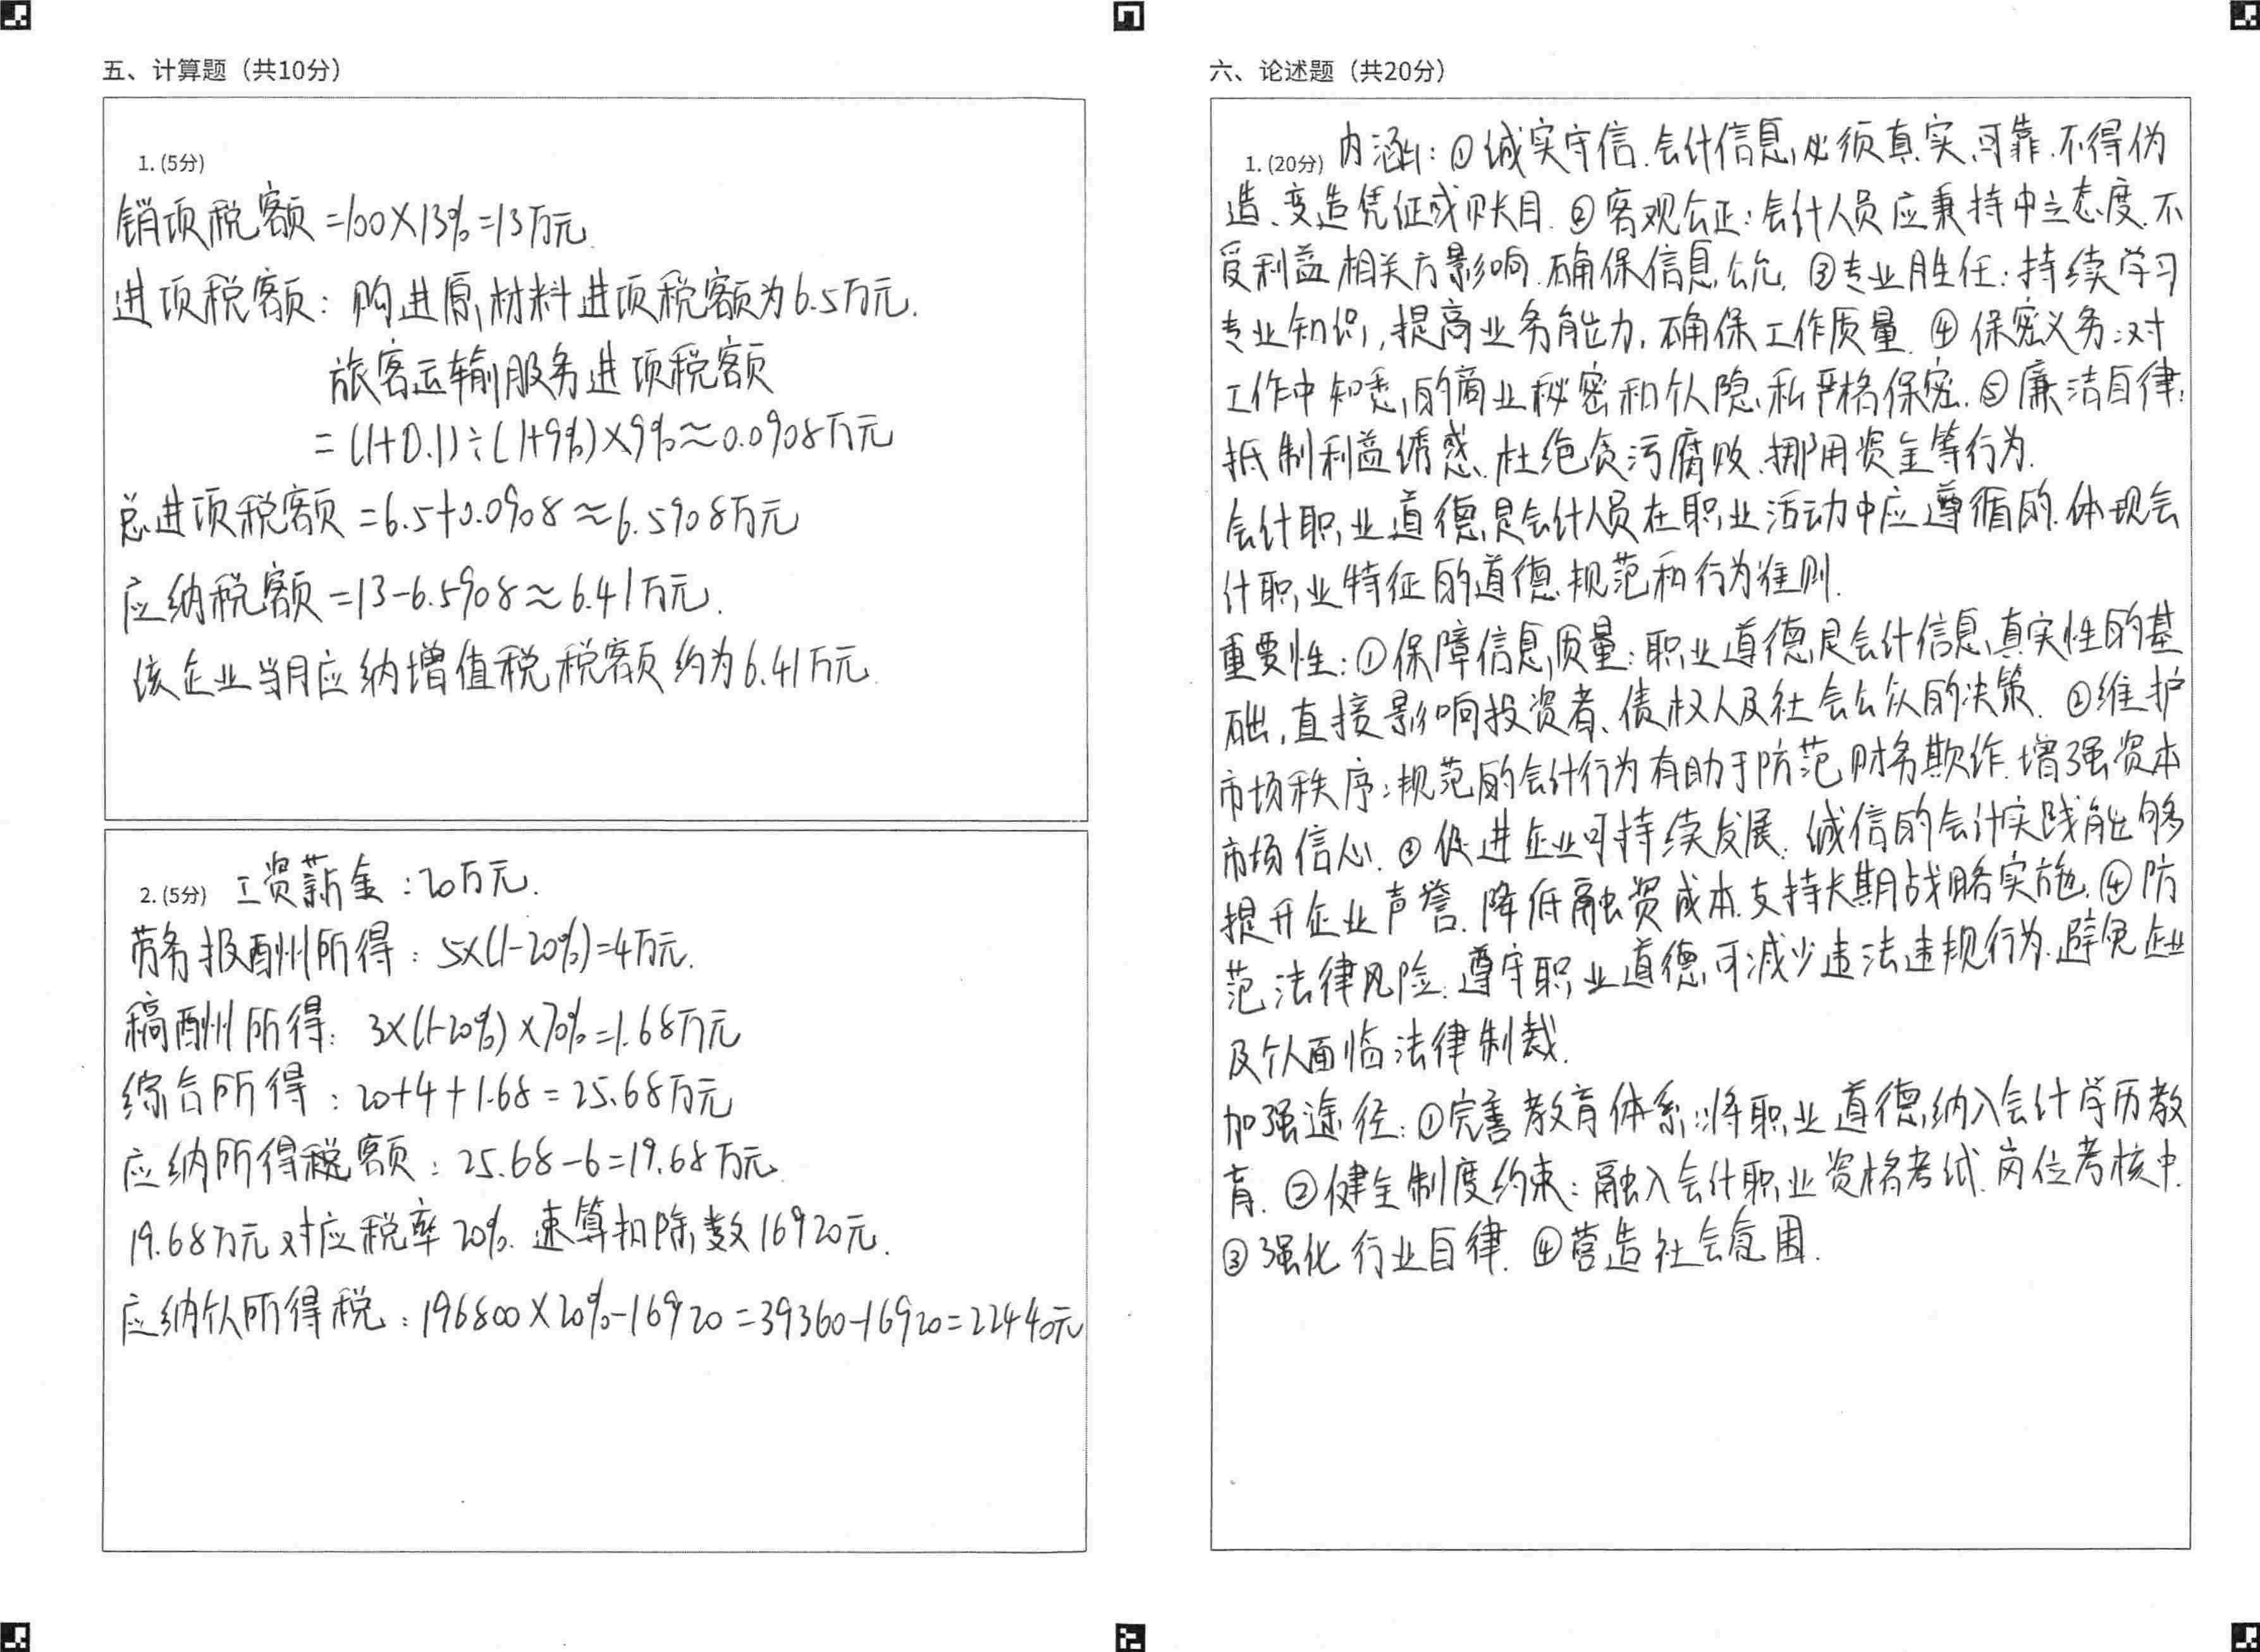 五、计算题（共10分）
1. (5分)
销项税额=100×13%=13万元.
进项税额：购进原材料进项税额为6.5万元.
旅客运输服务进项税额
=(1+0.1)÷(1+9%)×9%≈0.0908万元
总进项税额=6.5+0.0908≈6.5908万元
应纳税额=13-6.5908≈6.41万元.
该企业当月应纳增值税税额约为6.41万元.
2. (5分) 工资薪金：20万元.
劳务报酬所得：5×(1-20%)=4万元.
稿酬所得：3×(1-20%)×70%=1.68万元
综合所得：20+4+1.68=25.68万元
应纳所得税额：25.68-6=19.68万元.
19.68万元对应税率20%.速算扣除数16920元.
应纳个人所得税：196800×20%-16920=39360-16920=22440元
六、论述题（共20分）
1. (20分) 内涵：①诚实守信.会计信息必须真实、可靠.不得伪
造、变造凭证或账目.②客观公正：会计人员应秉持中立态度.不
受利益相关方影响.确保信息公允.③专业胜任：持续学习
专业知识，提高业务能力，确保工作质量.④保密义务：对
工作中知悉的商业秘密和个人隐私严格保密.⑤廉洁自律：
抵制利益诱惑.杜绝贪污腐败、挪用资金等行为.
会计职业道德是会计人员在职业活动中应遵循的.体现会
计职业特征的道德规范和行为准则.
重要性：①保障信息质量：职业道德是会计信息真实性的基
础，直接影响投资者、债权人及社会公众的决策.②维护
市场秩序：规范的会计行为有助于防范财务欺诈.增强资本
市场信心.③促进企业可持续发展：诚信的会计实践能够
提升企业声誉.降低融资成本.支持长期战略实施.④防
范法律风险.遵守职业道德可减少违法违规行为.避免企业
及个人面临法律制裁.
加强途径：①完善教育体系：将职业道德纳入会计学历教
育.②健全制度约束：融入会计职业资格考试.岗位考核中.
③强化行业自律.④营造社会氛围.